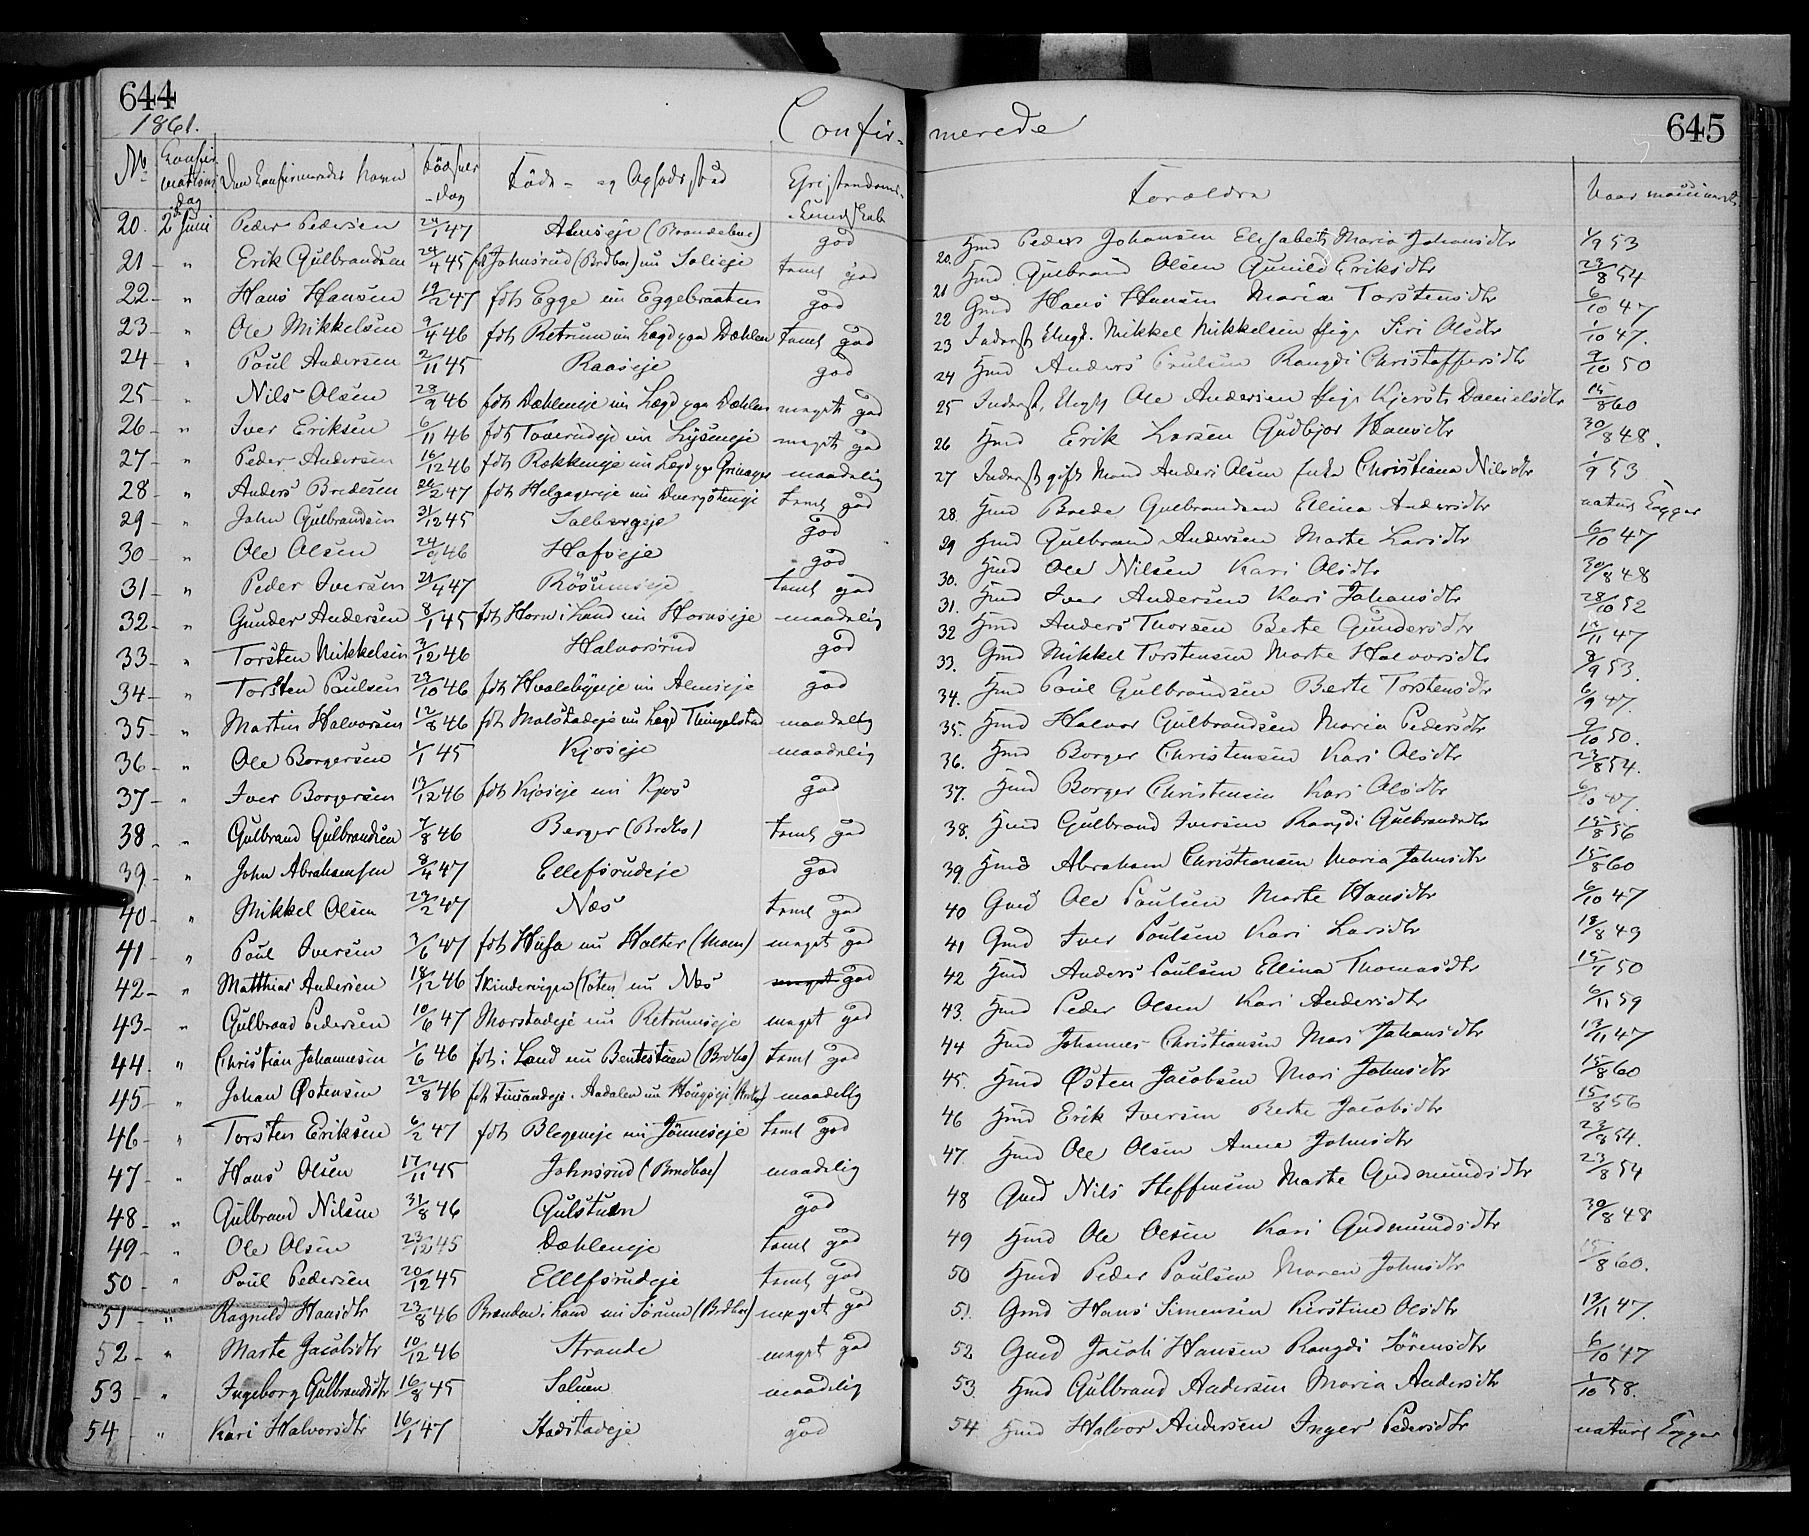 644
1861.
Confir-
No
Confir-
mations
dag
Den Confirmeredes Navn
Fødsels
-dag
Føde- og Opholdssted
Christendoms-
kundskab
20. 2 Juni Peder Pedersen 24/1 47 Almseje (Brandebue) god
21 - " Erik Gulbrandsen 24/4 45 fdt Johnsrud (Brdbu) nu Solieje taml god
22 - " Hans Hansen 19/2 47 fdt Egge nu Eggebraaten god
23 - " Ole Mikkelsen 9/4 46 fdt Retrum nu Lægd paa Dæhlen taml god
24 - " Poul Andersen 2/11 45 Raaseje god
25 - " Nils Olsen 28/9 46 fdt Dæhleneje nu Lægd paa Dæhlen meget god
26 - " Iver Eriksen 6/11 46 fdt Toverudeje nu Lyseneje meget god
27 - " Peder Andersen 16/12 46 fdt Rækkeneje nu Lægd paa maadelig
28 - " Anders Bredesen 26/2 47 fdt Helgagereje nu Dvergsteneje taml god
29 - " John Gulbrandsen 31/12 45 Solbergeje god
30 - " Ole Olsen 24/9 46 Hofseje god
31 - " Peder Iversen 21/4 47 Røsumseje taml god
32 - " Gunder Andersen 8/1 45 fdt Horn i Land nu Hornseje maadelig
33 - " Torsten Mikkelsen 3/12 46 Halvorsrud god
34 - " Torsten Poulsen 23/10 46 fdt Hvalebyeje nu Almseje god
35 - " Martin Halvorsen 12/8 46 fdt Molstadeje nu Lægd Thingelstad maadelig
36 - " Ole Borgersen 1/1 45 Kjoseje maadelig
37 - " Iver Borgersen 13/12 46 fdt Kjoseje nu Kjos god
38 - " Gulbrand Gulbrandsen 7/8 46 Berger (Brdbo) taml god
39 - " John Abrahamsen 8/4 47 Ellefsrudeje god
40 - " Mikkel Olsen 23/2 47 Næs taml god
41 - " Poul Iversen 3/6 47 fdt Hufa nu Holter (Moen) meget god
42 - " Matthias Andersen 18/12 46 Skindervigen (Toten) nu Næs meget god
43 - " Gulbrand Pedersen 10/6 47 Morstadeje nu Retrumseje meget god
44 - " Christian Johannesen 1/6 46 fdt i Land nu Bentestuen (Brdbo) taml god
45 - " Johan Østensen 22/8 46 fdt Aadalen nu Hougseje maadelig
46 - " Torsten Eriksen 6/2 47 fdt Blegeneje nu Jønneseje taml god
47 - " Hans Olsen 17/11 45 Johnsrud (Brndboe) maadelig
48 - " Gulbrand Nilsen 31/8 46 Gulstuen god
49 - " Ole Olsen 23/12 45 Dæhleneje taml god
50 - " Poul Pedersen 20/12 45 Ellefsrudeje taml god
51 - " Ragnild Hansdtr 23/8 46 Branden i Land nu Sørum (Brdboe) meget god
52 - " Marte Jacobsdtr 10/12 46 Strande meget god
53 - " Ingeborg Gulbrandsdtr 16/8 45 Soluen maadelig
54 - " Kari Halvorsdtr 16/1 47 Hadstadeje god
645
merede
Forældre
Naar
20. Hmd Peder Johansen Elisabeth Maria Johansdtr 1/9 53
21 Hmd Gulbrand Olsen Gunild Eriksdtr 23/8 54
22 Gmd Hans Hansen Maria Torstensdtr 6/10 47
23 Inderst Ungk. Mikkel Mikkelsen Pige Siri Olsdtr 1/10 47.
24 Hmd Anders Poulsen Rangdi Christoffersdtr 9/10 50
25 Inderst, Ungk Ole Andersen Pige Kjersti Danielsdtr 15/8 60
26 Hmd Erik Larsen Gudbjør Hansdtr 30/8 48.
27 Inderst gift Mand Anders Olsen Enke Christiana Nilsdtr 1/9 53
28. Hmd Brede Gulbrandsen Ellina Andersdtr naturl Kopper
29 Hmd Gulbrand Andersen Marte Larsdtr 6/10 47
30. Hmd Ole Nilsen Kari Olsdtr 30/8 48
31. Hmd Iver Andersen Kari Johansdtr 28/10 52
32 Hmd Anders Thorsen Berte Gundersdtr 14/11 47
33. Gmd Mikkel Torstensen Marte Halvorsdtr 8/9 53.
34. Hmd Poul Gulbrandsen Berte Torstensdtr 6/9 47.
35. Hmd Halvor Gulbrandsen Maria Pedersdtr 9/10 50.
36. Hmd Borger Christensen Kari Olsdtr 23/8 54.
37. Hmd Borger Christensen Kari Olsdtr 6/10 47.
38. Hmd Gulbrand Iversen Rangdi Gulbrandsdtr 15/8 56
39. Hmd Abraham Christiansen Maria Johnsdtr 15/8 60
40 Gmd Ole Poulsen Marte Hansdtr 6/10 47
41 Gmd Iver Poulsen Kari Larsdtr 18/8 49
42 Hmd Anders Poulsen Ellina Thomasdtr 15/1 50
43. Hmd Peder Olsen Kari Andersdtr 6/11 59
44 Hmd Johannes Christiansen Mari Johansdtr 13/11 47
45. Hmd Østen Jacobsen Mari Johnsdtr 15/8 60
46 Hmd Erik Iversen Berte Jacobsdtr 15/8 56
47. Hmd Ole Olsen Anne Johnsdtr 23/8 54.
48 Gmd Nils Steffensen Marte Gudmundsdtr 23/8 54
49 Hmd Ole Olsen Kari Gudmundsdtr 30/8 48
50 Hmd Peder Poulsen Maren Johnsdtr 15/8 60.
51. Gmd Hans Simensen Kirstine Olsdtr 13/11 47.
52 Gmd Jacob Hansen Rangdi Sørensdtr 6/10 47
53. Hmd Gulbrand Andersen Maria Andersdtr 1/10 58.
54 Hmd Halvor Andersen Inger Pedersdtr naturl Kopper